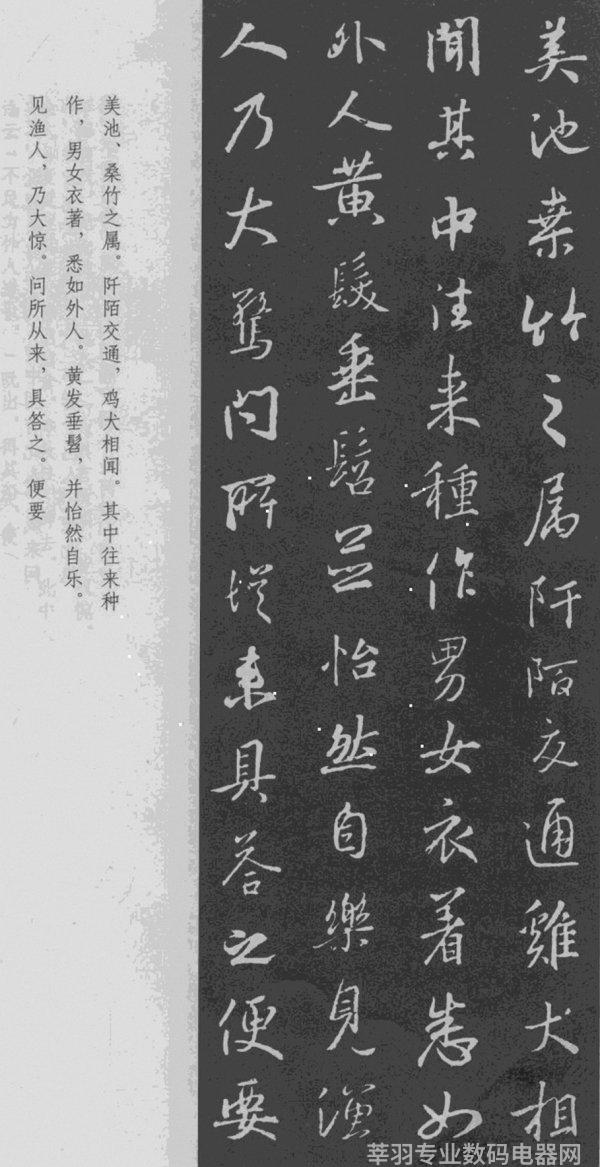 美池桑竹之属阡陌交通雞犬相
聞其中往来種作男女衣着悉如
外人黄髮垂髫並怡然自樂見漁
人乃大驚问所從来具答之便要
美池、桑竹之属。阡陌交通，鸡犬相闻。其中往来种
作，男女衣著，悉如外人。黄发垂髫，并怡然自乐。
见渔人，乃大惊。问所从来，具答之。便要
莘羽专业数码电器网